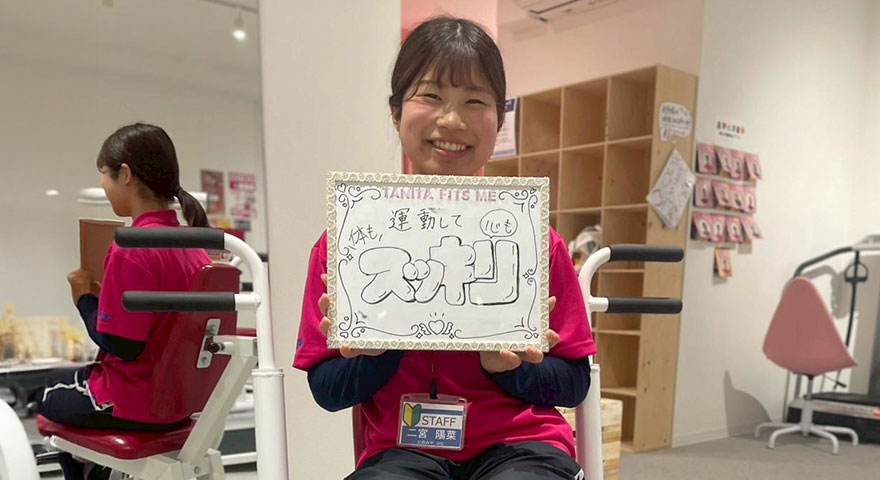 TANITA FITS ME
運動して
体も、
心も
スッキリ
STAFF
二宮 陽菜